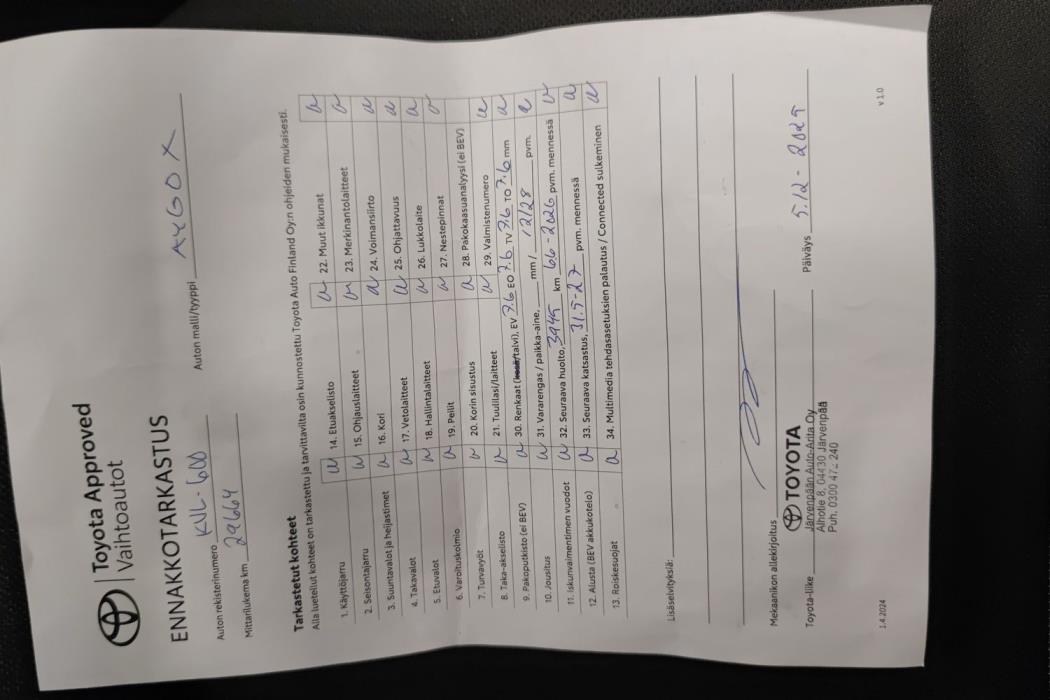 Toyota Approved
Vaihtoautot
ENNAKKOTARKASTUS
Auton rekisterinumero KUL-600
Auton malli/tyyppi AYGO X
Mittarilukema km 29664
Tarkastetut kohteet
Alla luetellut kohteet on tarkastettu ja tarvittavilta osin kunnostettu Toyota Auto Finland Oy:n ohjeiden mukaisesti.
1. Käyttöjarru
2. Seisontajarru
3. Suuntavalot ja heijastimet
4. Takavalot
5. Etuvalot
6. Varoituskolmio
7. Turvavyöt
8. Taka-akselisto
9. Pakoputkisto (ei BEV)
10. Jousitus
11. Iskunvaimentimen vuodot
12. Alusta (BEV akkukotelo)
13. Roiskesuojat
14. Etuakselisto
15. Ohjauslaitteet
16. Kori
17. Vetolaitteet
18. Hallintalaitteet
19. Peilit
20. Korin sisustus
21. Tuulilasi/laitteet
22. Muut ikkunat
23. Merkinantolaitteet
24. Voimansiirto
25. Ohjattavuus
26. Lukkolaite
27. Nestepinnat
28. Pakokaasuanalyysi (ei BEV)
29. Valmistenumero
30. Renkaat (kesä/talvi), EV 7.6 EO 7.6 TV 7.6 TO 7.6 mm
31. Vararengas / paikka-aine, mm / 12/28 pvm.
32. Seuraava huolto, km 6.6-2026 pvm. mennessä
33. Seuraava katsastus, 31.5-27 pvm. mennessä
34. Multimedia tehdasasetuksien palautus / Connected sulkeminen
Lisäselvityksiä:
Mekaanikon allekirjoitus
Toyota-liike
TOYOTA
Järvenpään Auto-Arita Oy
Alhotie 8, 04430 Järvenpää
Puh. 0300 472 240
Päiväys 5.12-2025
1.4.2024
v 1.0